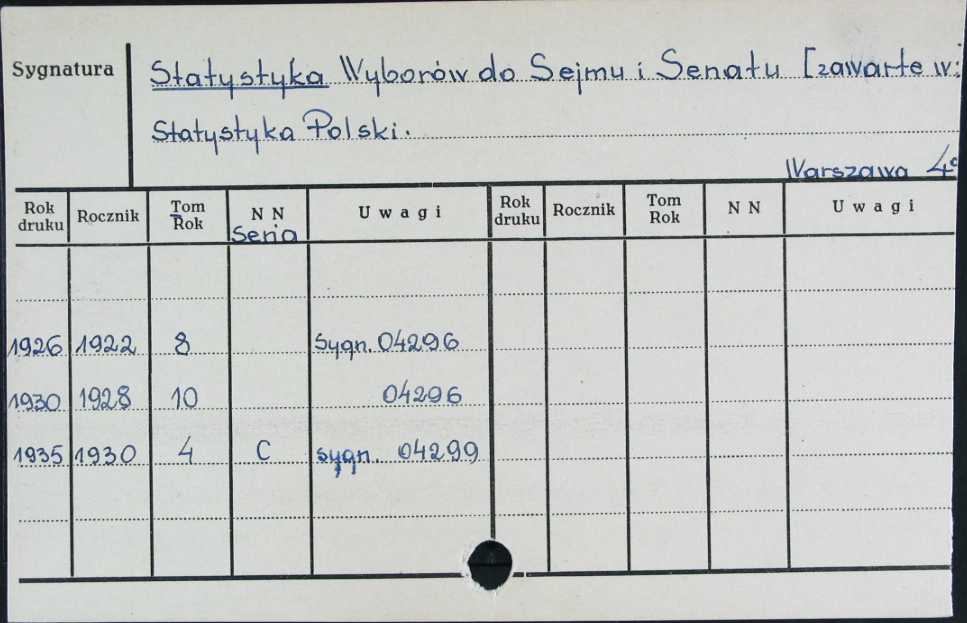 Sygnatura
Statystyka Wyborów do Sejmu i Senatu [zawarte w:
Statystyka Polski.
Warszawa 4°
Rok druku Rocznik Tom Rok N N Seria U w a g i Rok druku Rocznik Tom Rok N N U w a g i
1926 1922 8 Sygn. 04296
1930 1928 10 04296
1935 1930 4 C sygn. 04299